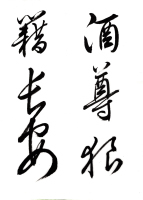 酒尊狼
籍長安